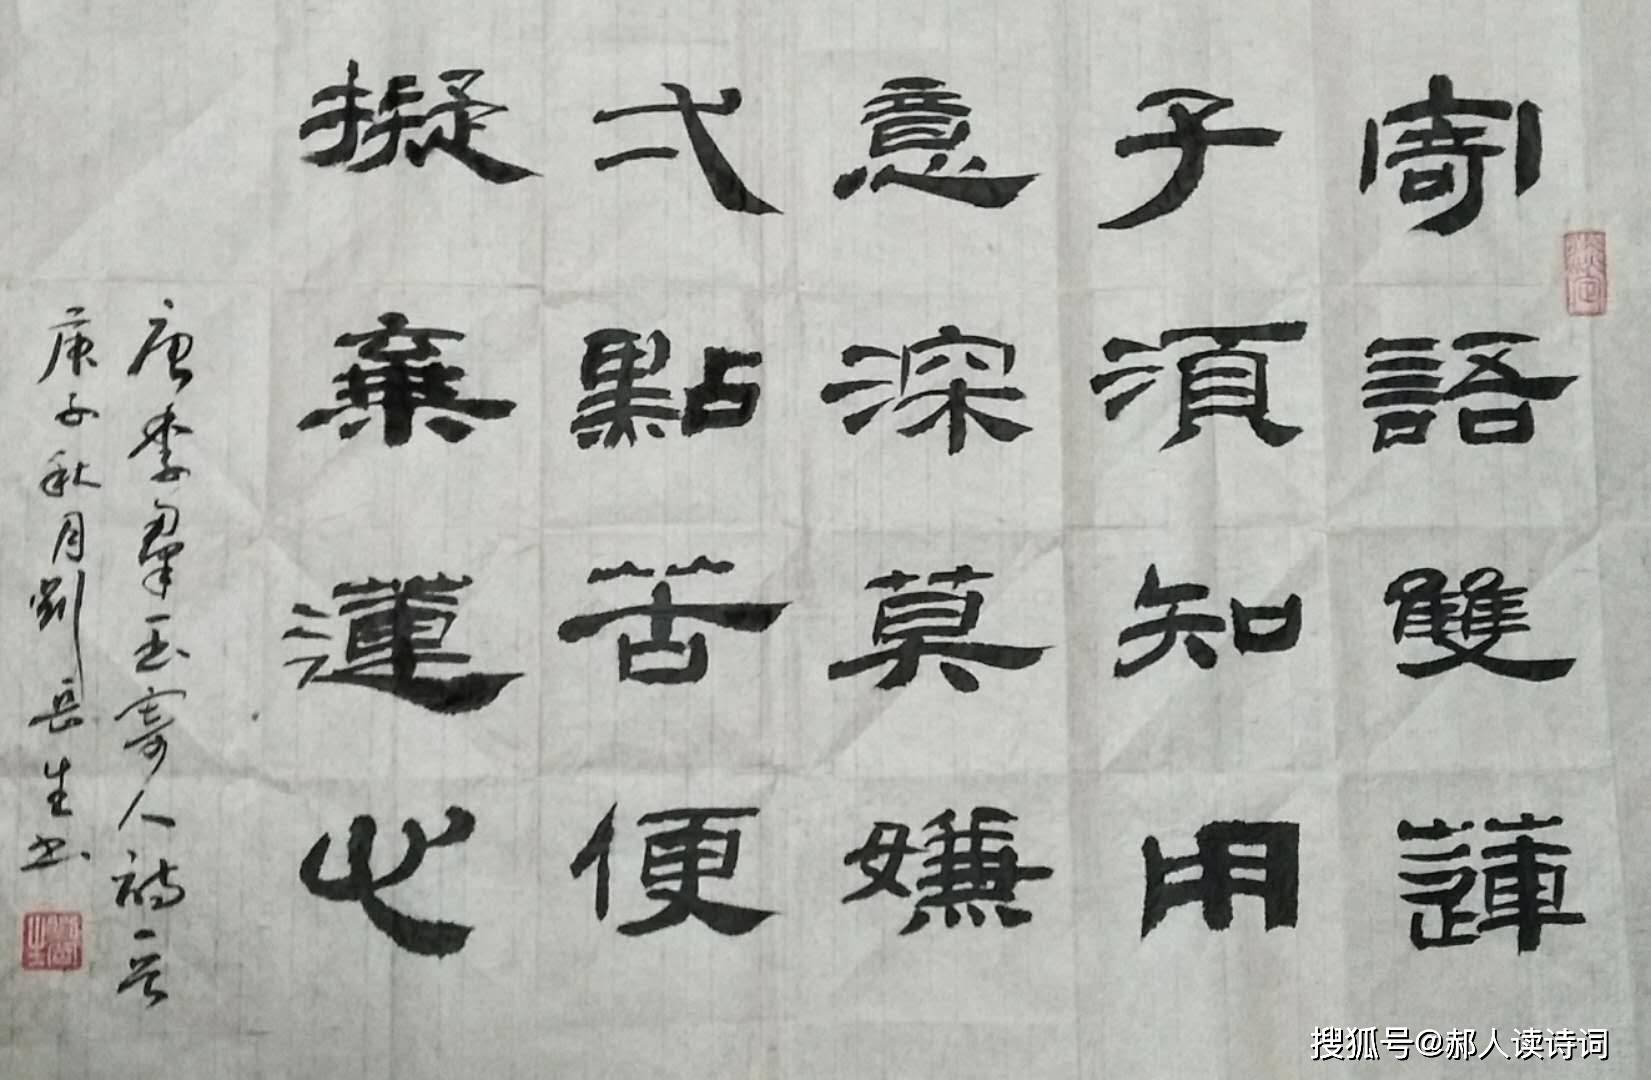 寄語雙蓮
子須知用
意深莫嫌
弌點苦便
擬棄蓮心
唐李羣玉寄人詩一首
庚子秋月劉岳生书
搜狐号@郝人读诗词